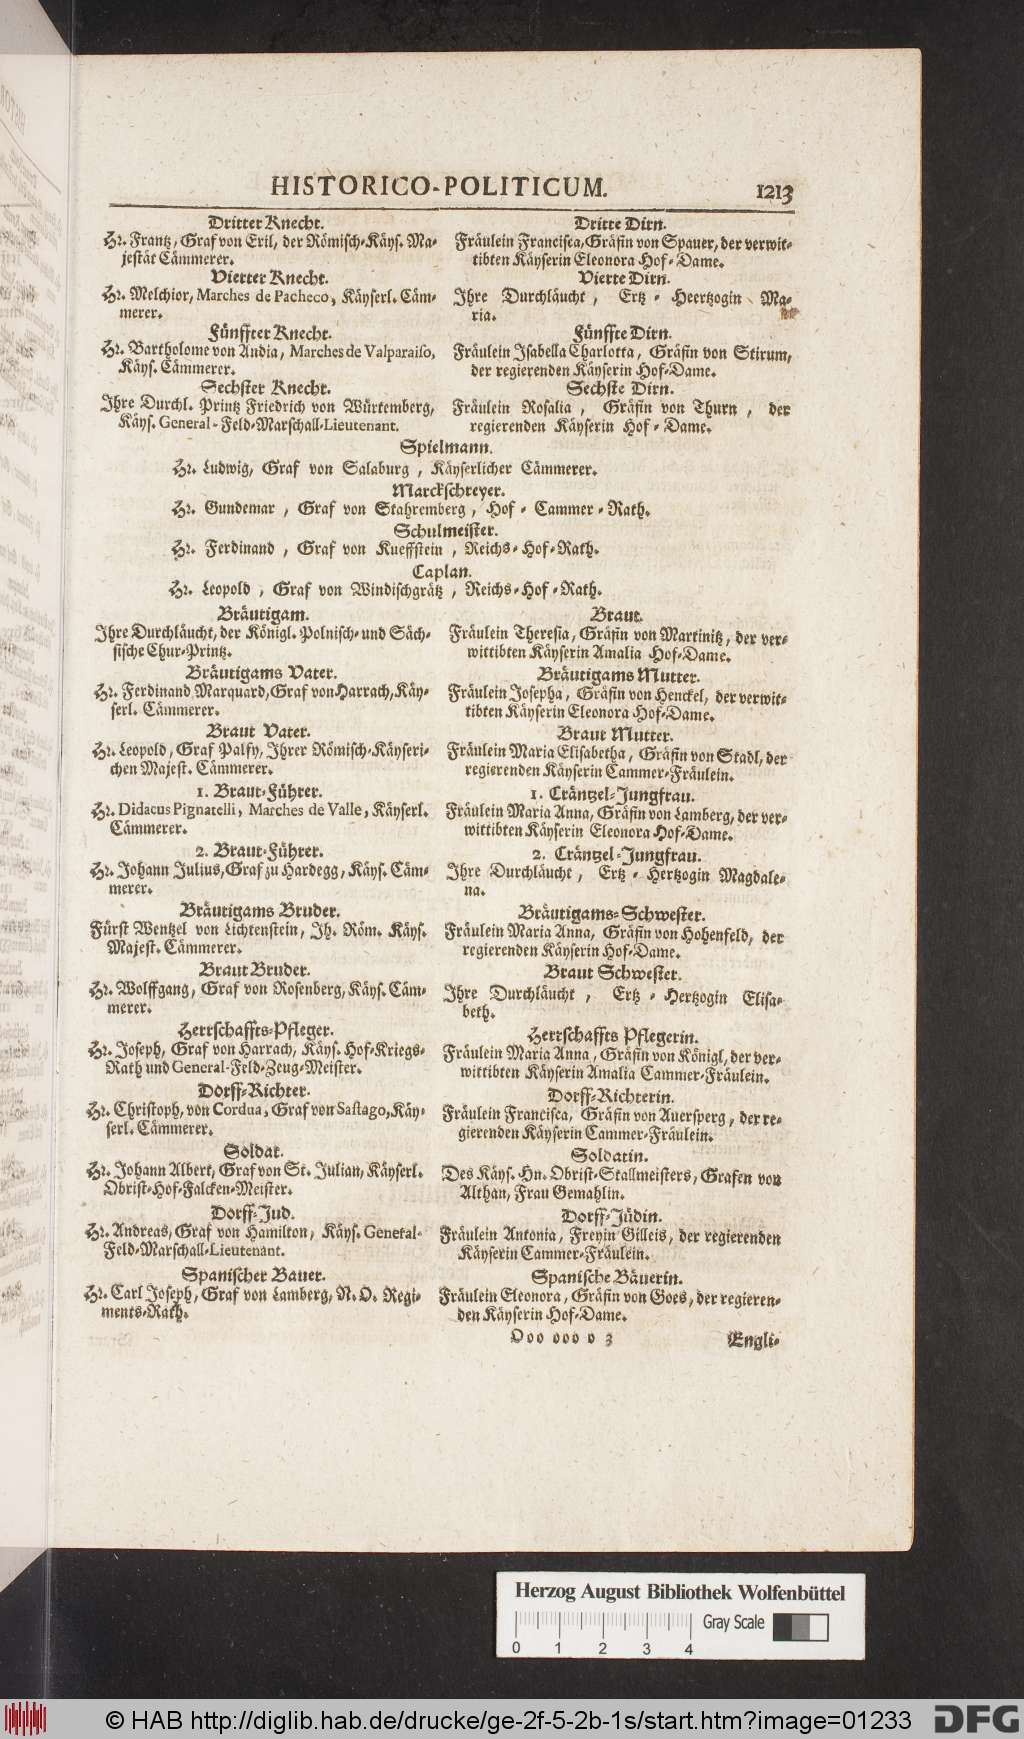 HISTORICO-POLITICUM. 1213
Dritter Knecht.
Hr. Frantz, Graf von Eril, der Römisch-Käys. Ma-
jestät Cämmerer.
Dritte Dirn.
Fräulein Francisca, Gräfin von Spauer, der verwit-
tibten Käyserin Eleonora Hof-Dame.
Vierter Knecht.
Hr. Melchior, Marches de Pacheco, Käyserl. Cäm-
merer.
Vierte Dirn.
Ihre Durchläucht, Ertz-Heertzogin Ma-
ria.
Fünffter Knecht.
Hr. Bartholome von Andia, Marches de Valparaiso,
Käys. Cämmerer.
Fünffte Dirn.
Fräulein Isabella Charlotta, Gräfin von Stirum,
der regierenden Käyserin Hof-Dame.
Sechster Knecht.
Ihre Durchl. Printz Friedrich von Würtemberg,
Käys. General-Feld-Marschall-Lieutenant.
Sechste Dirn.
Fräulein Rosalia, Gräfin von Thurn, der
regierenden Käyserin Hof-Dame.
Spielmann.
Hr. Ludwig, Graf von Salaburg, Käyserlicher Cämmerer.
Marckschreyer.
Hr. Gundemar, Graf von Stahremberg, Hof-Cammer-Rath.
Schulmeister.
Hr. Ferdinand, Graf von Kueffstein, Reichs-Hof-Rath.
Caplan.
Hr. Leopold, Graf von Windischgrätz, Reichs-Hof-Rath.
Bräutigam.
Ihre Durchläucht, der Königl. Polnisch- und Säch-
sische Chur-Printz.
Braut.
Fräulein Theresia, Gräfin von Martinitz, der ver-
wittibten Käyserin Amalia Hof-Dame.
Bräutigams Vater.
Hr. Ferdinand Marquard, Graf von Harrach, Käy-
serl. Cämmerer.
Bräutigams Mutter.
Fräulein Josepha, Gräfin von Henckel, der verwit-
tibten Käyserin Eleonora Hof-Dame.
Braut Vater.
Hr. Leopold, Graf Palfy, Ihrer Römisch-Käyseri-
chen Majest. Cämmerer.
Braut Mutter.
Fräulein Maria Elisabetha, Gräfin von Stadl, der
regierenden Käyserin Cammer-Fräulein.
1. Braut-Führer.
Hr. Didacus Pignatelli, Marches de Valle, Käyserl.
Cämmerer.
1. Cräntzel-Jungfrau.
Fräulein Maria Anna, Gräfin von Lamberg, der ver-
wittibten Käyserin Eleonora Hof-Dame.
2. Braut-Führer.
Hr. Johann Julius, Graf zu Hardegg, Käys. Cäm-
merer.
2. Cräntzel-Jungfrau.
Ihre Durchläucht, Ertz-Hertzogin Magdale-
na.
Bräutigams Bruder.
Fürst Wentzel von Lichtenstein, Ih. Röm. Käys.
Majest. Cämmerer.
Bräutigams-Schwester.
Fräulein Maria Anna, Gräfin von Hohenfeld, der
regierenden Käyserin Hof-Dame.
Braut Bruder.
Hr. Wolffgang, Graf von Rosenberg, Käys. Cäm-
merer.
Braut Schwester.
Ihre Durchläucht, Ertz-Hertzogin Elisa-
beth.
Herrschaffts-Pfleger.
Hr. Joseph, Graf von Harrach, Käys. Hof-Kriegs-
Rath und General-Feld-Zeug-Meister.
Herrschaffts Pflegerin.
Fräulein Maria Anna, Gräfin von Königl, der ver-
wittibten Käyserin Amalia Cammer-Fräulein.
Dorff-Richter.
Hr. Christoph, von Cordua, Graf von Sastago, Käy-
serl. Cämmerer.
Dorff-Richterin.
Fräulein Francisca, Gräfin von Auersperg, der re-
gierenden Käyserin Cammer-Fräulein.
Soldat.
Hr. Johann Albert, Graf von St. Julian, Käyserl.
Obrist-Hof-Falcken-Meister.
Soldatin.
Des Käys. Hn. Obrist-Stallmeisters, Grafen von
Althan, Frau Gemahlin.
Dorff-Jud.
Hr. Andreas, Graf von Hamilton, Käys. General-
Feld-Marschall-Lieutenant.
Dorff-Jüdin.
Fräulein Antonia, Freyin Gilleis, der regierenden
Käyserin Cammer-Fräulein.
Spanischer Bauer.
Hr. Carl Joseph, Graf von Lamberg, N. O. Regi-
ments-Rath.
Spanische Bäuerin.
Fräulein Eleonora, Gräfin von Goes, der regieren-
den Käyserin Hof-Dame.
Ooo ooo o 3 Engli-
Herzog August Bibliothek Wolfenbüttel
Gray Scale
0 1 2 3 4
© HAB http://diglib.hab.de/drucke/ge-2f-5-2b-1s/start.htm?image=01233 DFG